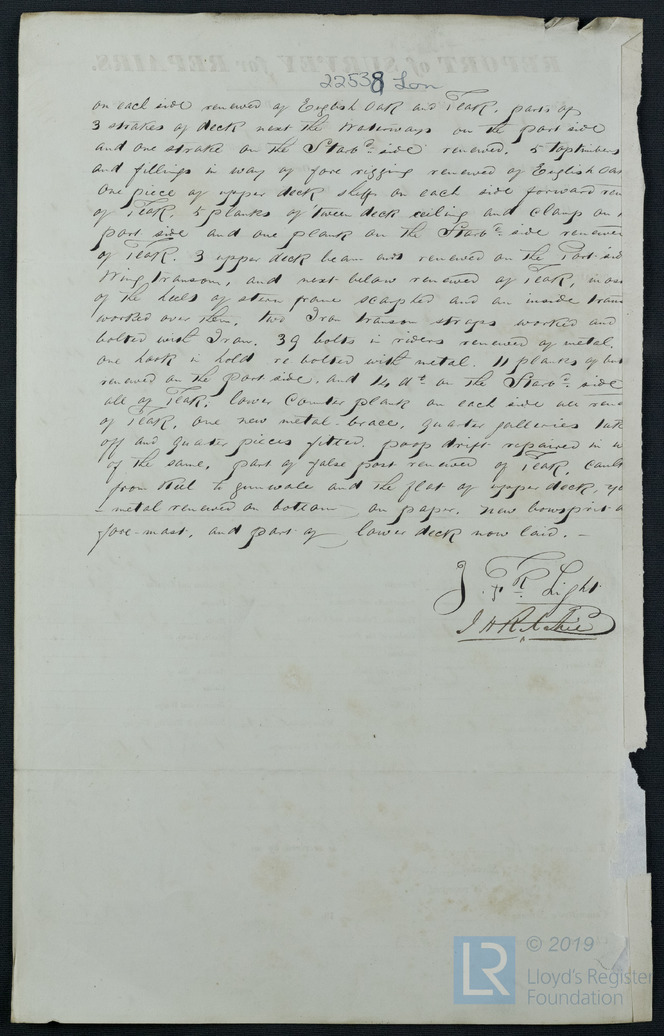 REPORT of SURVEY for REPAIRS.
22538 Lon
on each side renewed of English Oak and Teak, parts of
3 strakes of deck next the Waterways on the port side
and one strake on the Starbd. side renewed, 5 toptimbers
and fillings in way of fore rigging renewed of English Oa
One piece of upper deck shelf on each side forward ren
of Teak. 5 planks of 'tween deck ceiling and clamp on
port side and one plank on the Starbd. side renewe
of Teak. 3 upper deck beam ends renewed on the Port sid
Wing transom, and next below renewed of Teak,
of the heels of stern frame scarphed and an inside trans
worked over them, two Iron transom straps worked and
bolted with Iron. 39 bolts in riders renewed of metal.
one hook in hold re bolted with metal. 11 planks of
renewed on the port side, and 14 do. on the Starbd. side
all of Teak, lower Counter plank on each side all rene
of Teak, one new metal brace, quarter galleries tak
off and quarter pieces fitted. poop drift repaired in w
of the same, part of false post renewed of Teak, Caulk
from Keel to gunwale and the flat of upper deck, ye
metal renewed on bottom on paper. New bowsprit
fore-mast, and part of lower deck now laid. -
Light
J H Ritchie
© 2019
LR
Lloyd's Register
Foundation